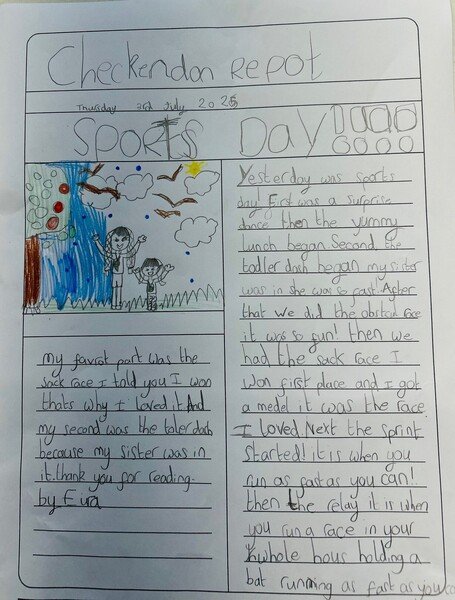 Checkendon Repot
Thursday 3rd July 2025
SPORTS DAY
Yesterday was sports
day. First was a surprise
dance, then the yummy
Lunch began. Second the
todler dash began my sister
was in she was so fast! After
that we did the obstcal race
it was so fun! then we
had the sack race I
won first place and I got
a medel it was the race
I loved Next the sprint
started! it is when you
run as fast as you can!
then the relay it is when
you run a race in your
whole hous holding a
bat running as fast as you
my favrot part was the
sack race I told you I won
thats why I loved it And
my second was the toler dash
because my sister was in
it. thank you for reading.
by